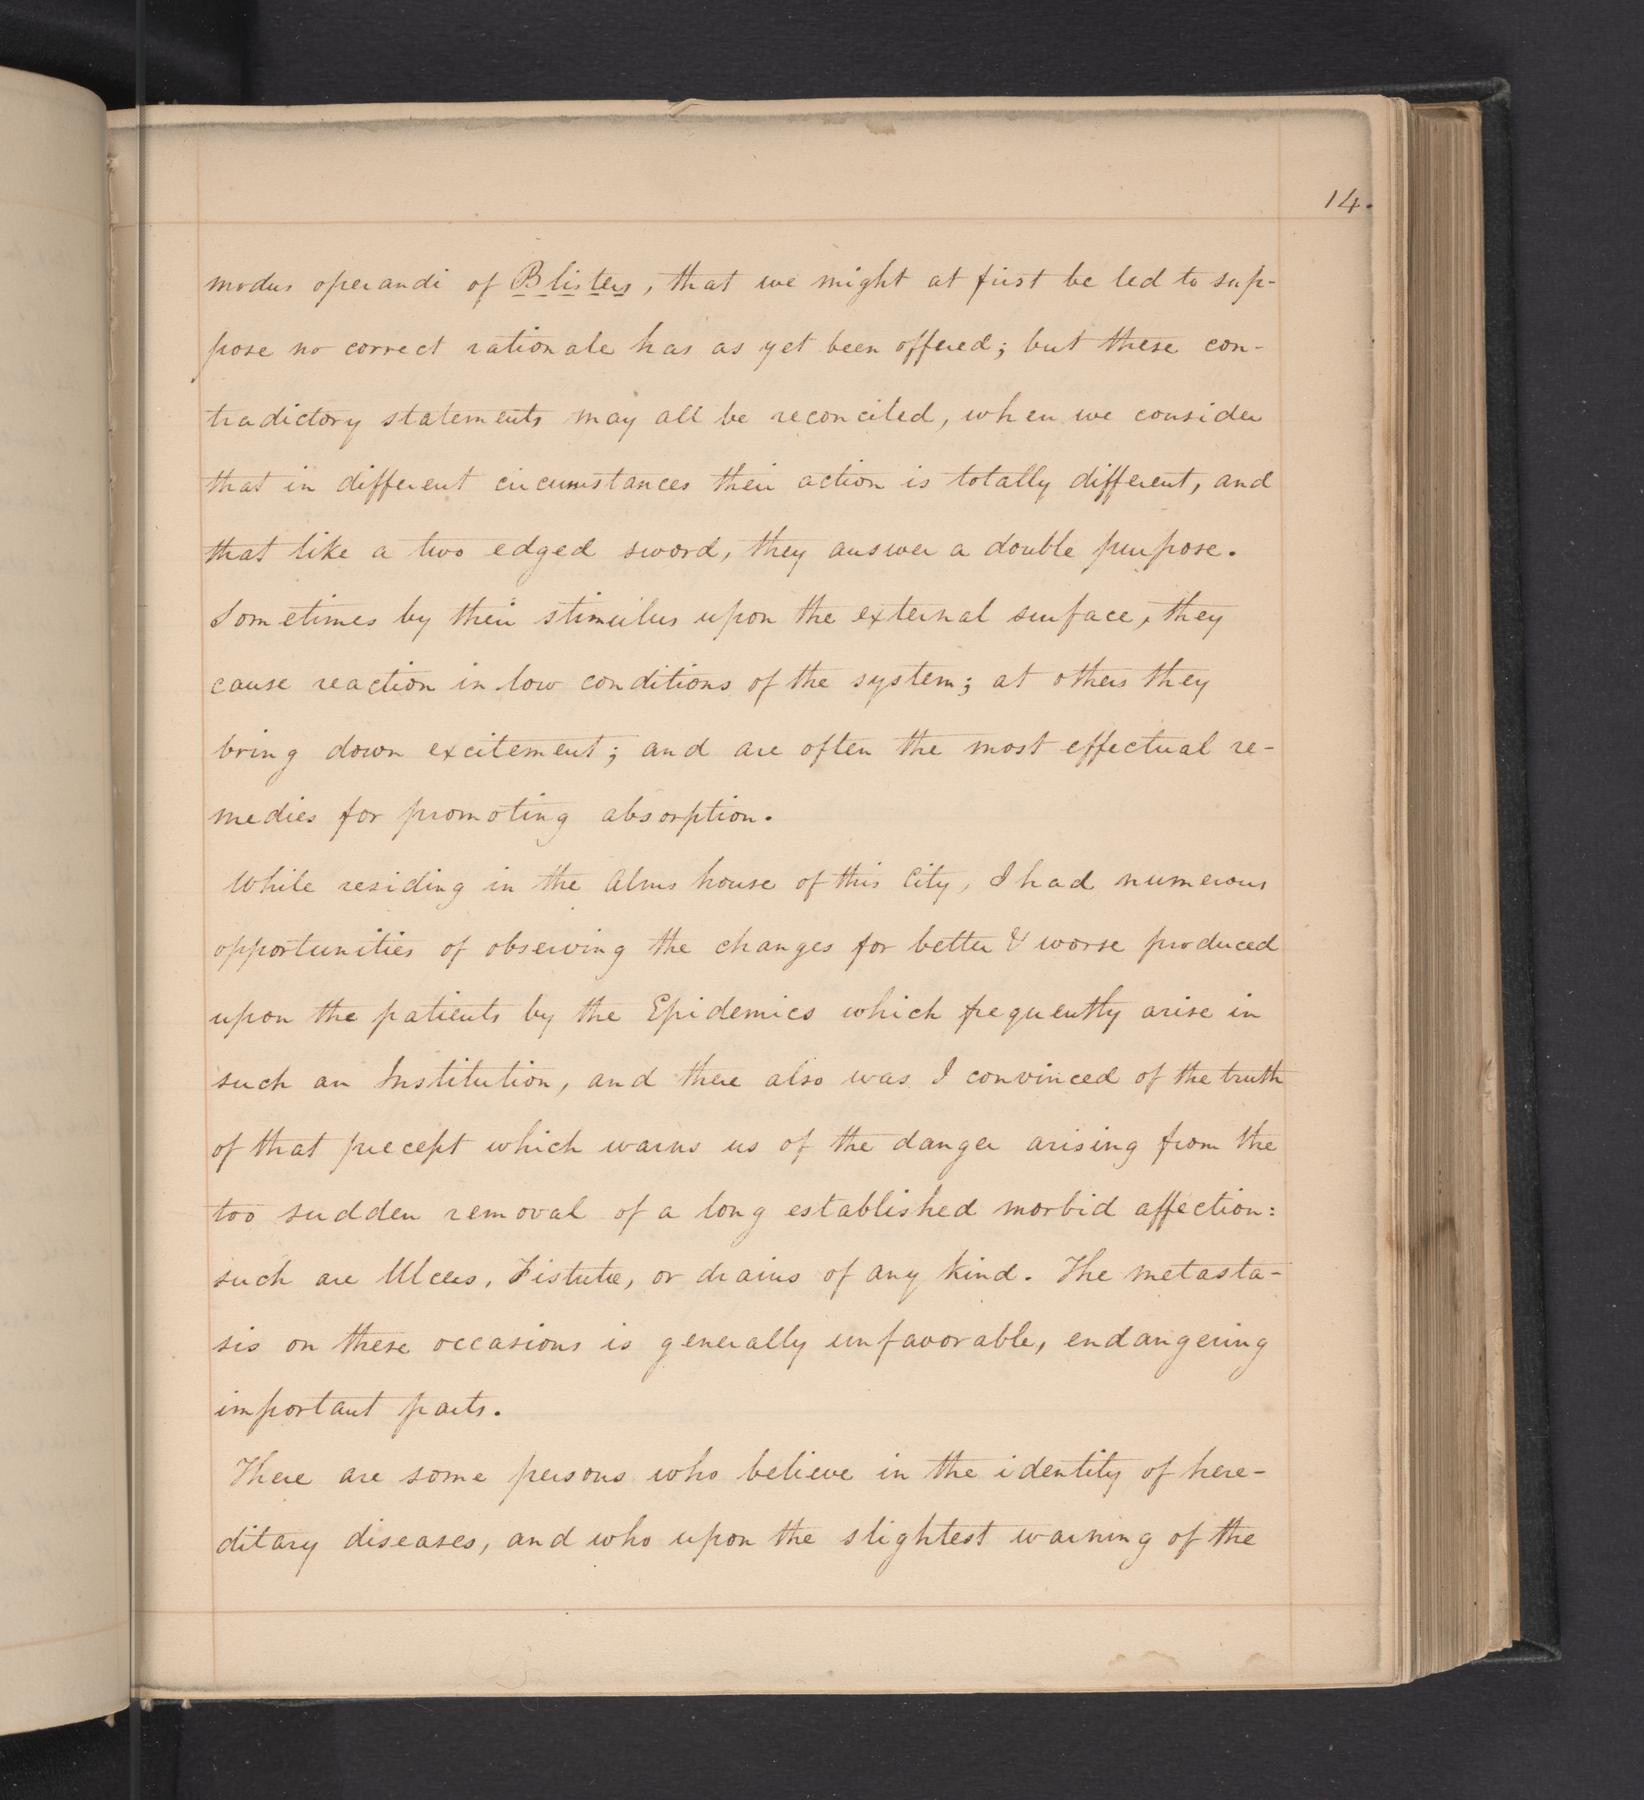 14.
modus operandi of Blisters, that we might at first be led to sup-
pose no correct rationale has as yet been offered; but these con-
tradictory statements may all be reconciled, when we consider
that in different circumstances their action is totally different, and
that like a two edged sword, they answer a double purpose.
Sometimes by their stimulus upon the external surface, they
cause reaction in low conditions of the system; at others they
bring down excitement; and are often the most effectual re-
medies for promoting absorption.
While residing in the Alms house of this City, I had numerous
opportunities of observing the changes for better & worse produced
upon the patients by the Epidemics which frequently arise in
such an Institution, and there also was I convinced of the truth
of that precept which warns us of the danger arising from the
too sudden removal of a long established morbid affection:
such are Ulcers, Fistulæ, or drains of any kind. The metasta-
sis on these occasions is generally unfavorable, endangering
important parts.
There are some persons who believe in the identity of here-
ditary diseases, and who upon the slightest warning of the